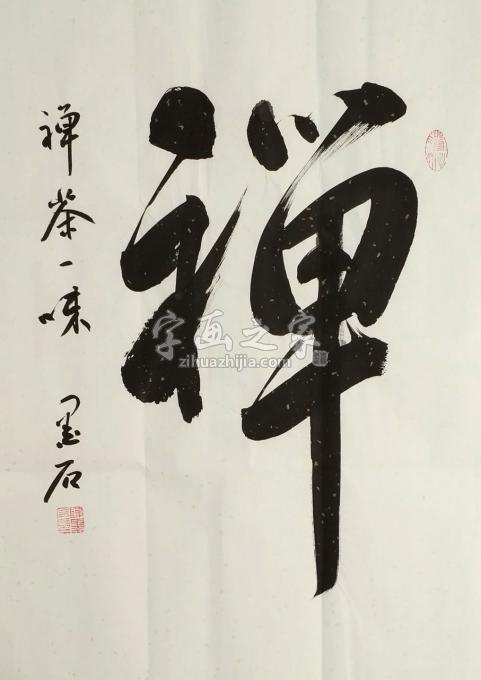 禅
禅茶一味
墨石
字画之家
zihuazhijia.com